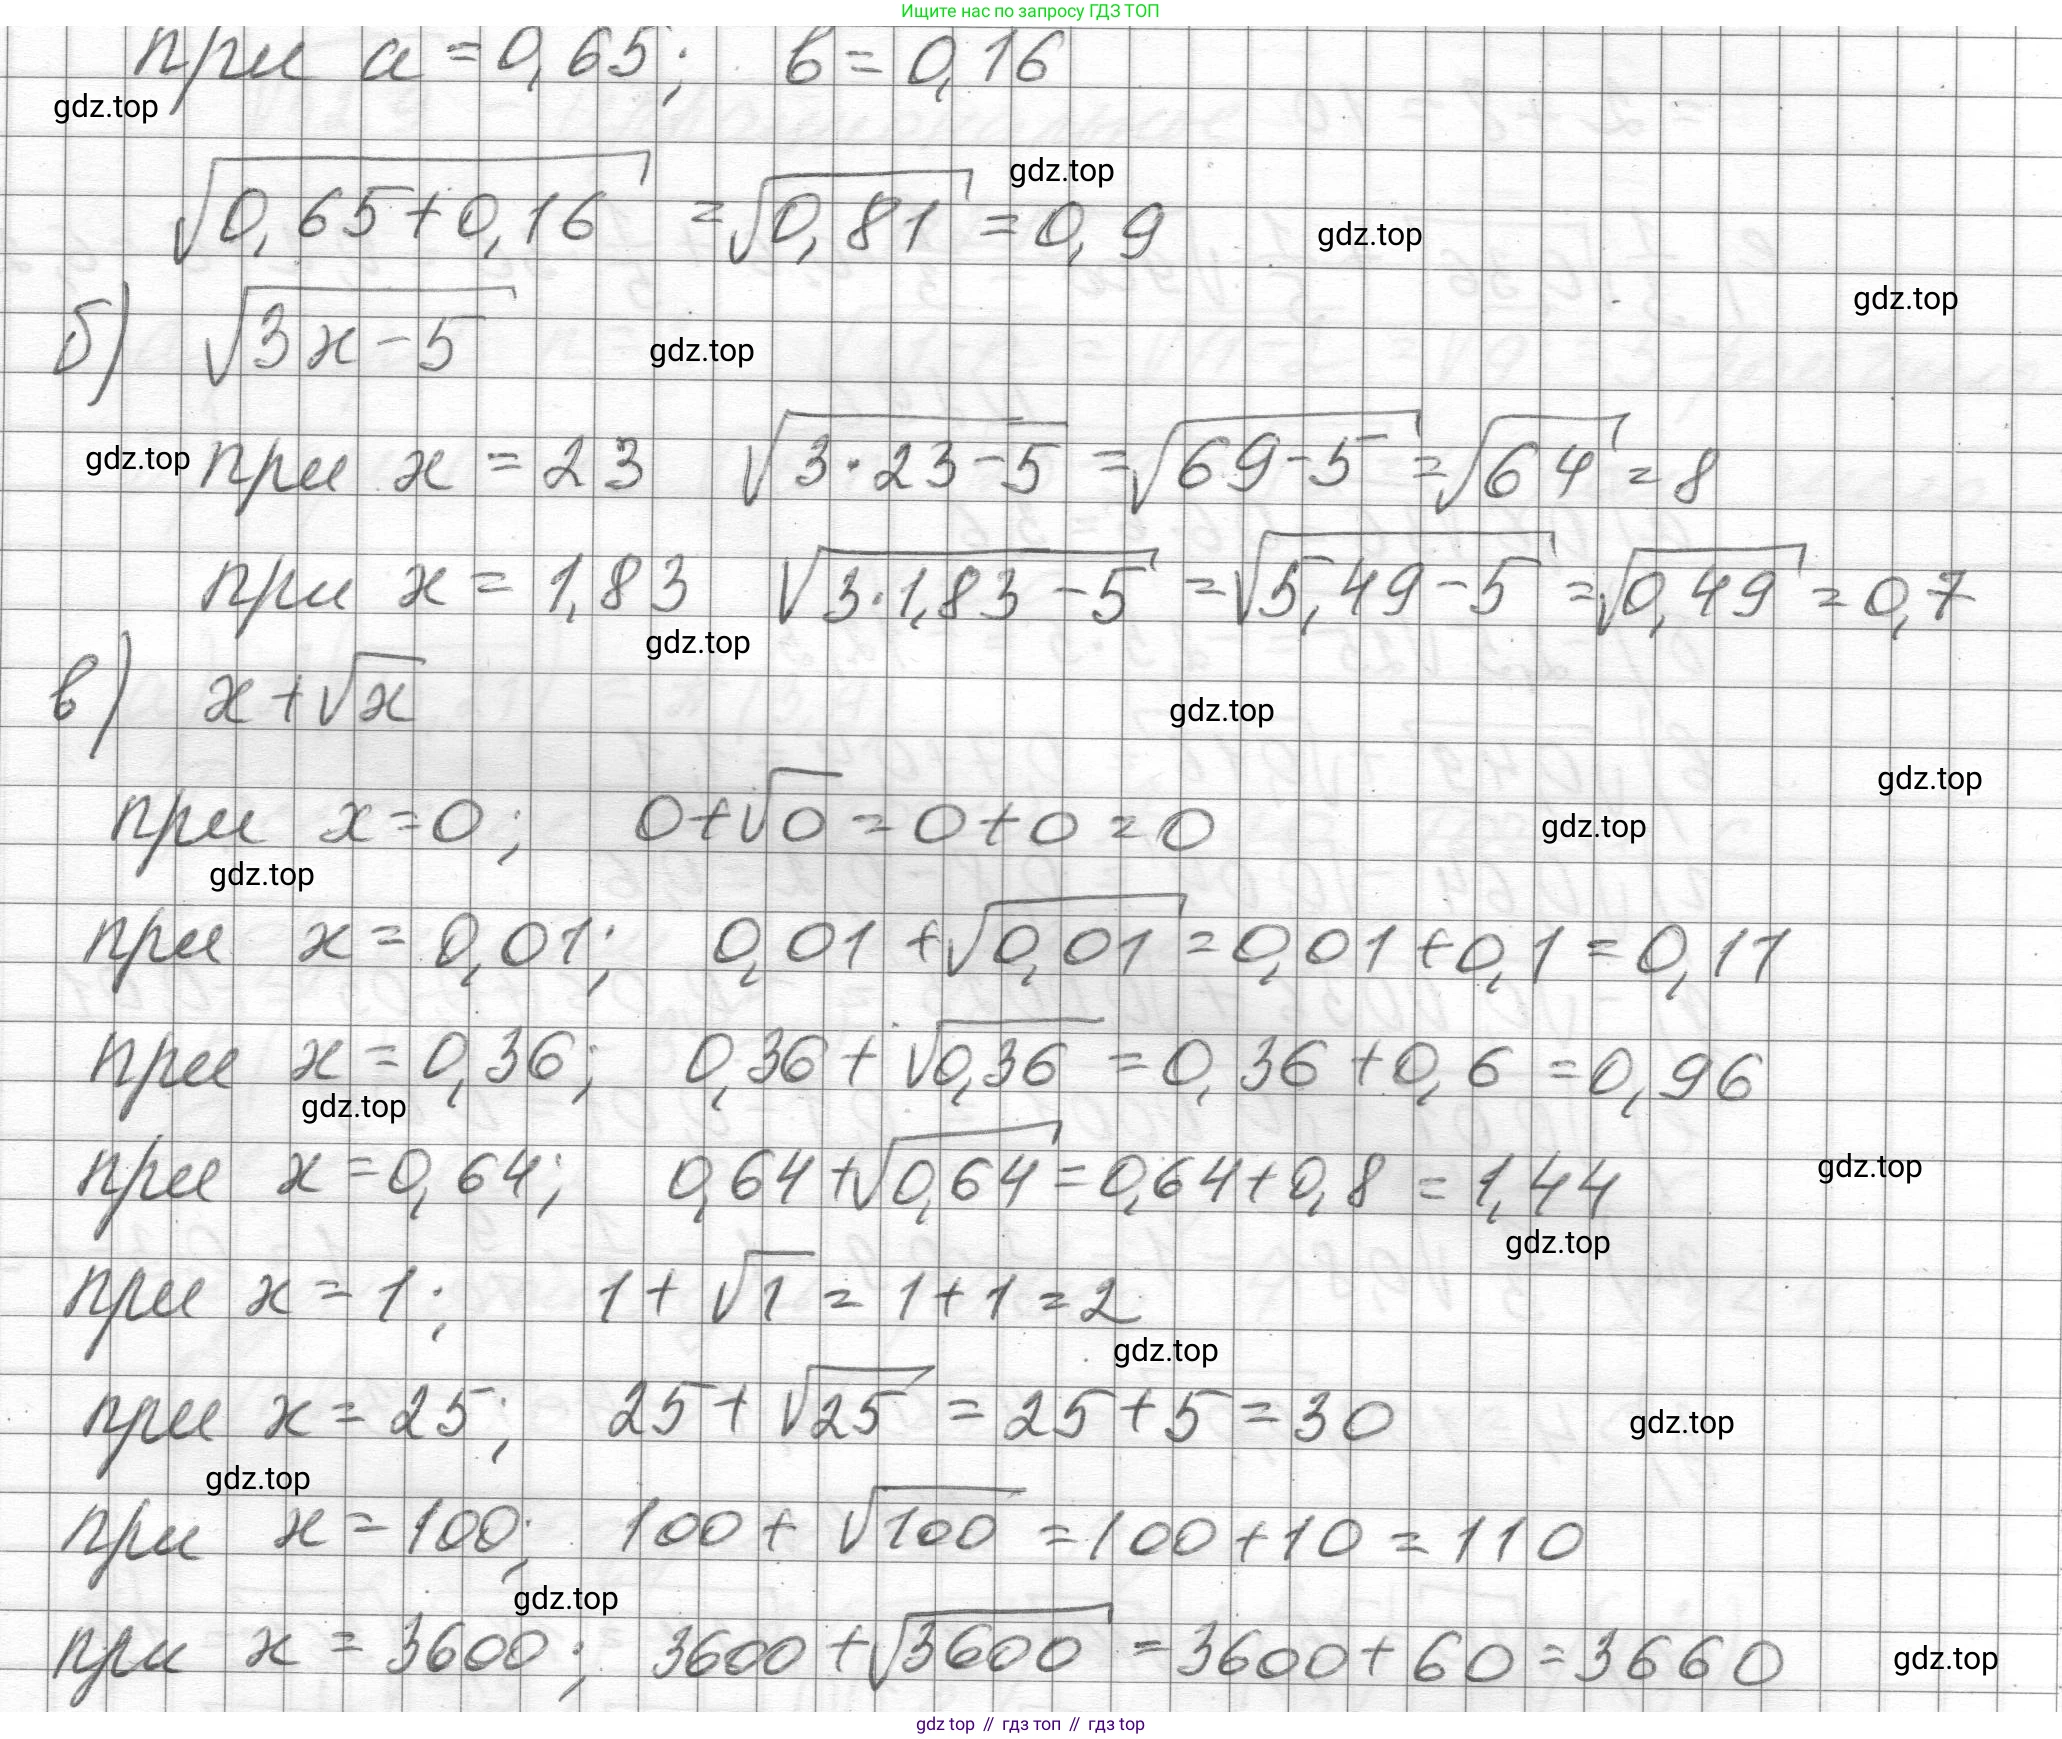 Ищите нас по запросу ГДЗ ТОП
при a = 0,65; в = 0,16
gdz.top
gdz.top
√0,65+0,16 = √0,81 = 0,9
gdz.top
gdz.top
б) √3x-5
gdz.top
gdz.top
при x = 23 √3·23-5 = √69-5 = √64 = 8
при x = 1,83 √3·1,83-5 = √5,49-5 = √0,49 = 0,7
gdz.top
в) x+√x
gdz.top
gdz.top
при x=0; 0+√0 = 0+0 = 0
gdz.top
gdz.top
при x = 0,01; 0,01 + √0,01 = 0,01 + 0,1 = 0,11
при x = 0,36; 0,36 + √0,36 = 0,36 + 0,6 = 0,96
gdz.top
при x = 0,64; 0,64 + √0,64 = 0,64 + 0,8 = 1,44
gdz.top
gdz.top
при x = 1; 1 + √1 = 1 + 1 = 2
gdz.top
при x = 25; 25 + √25 = 25 + 5 = 30
gdz.top
gdz.top
при x = 100; 100 + √100 = 100 + 10 = 110
gdz.top
при x = 3600; 3600 + √3600 = 3600 + 60 = 3660
gdz.top
gdz top // гдз топ // гдз top